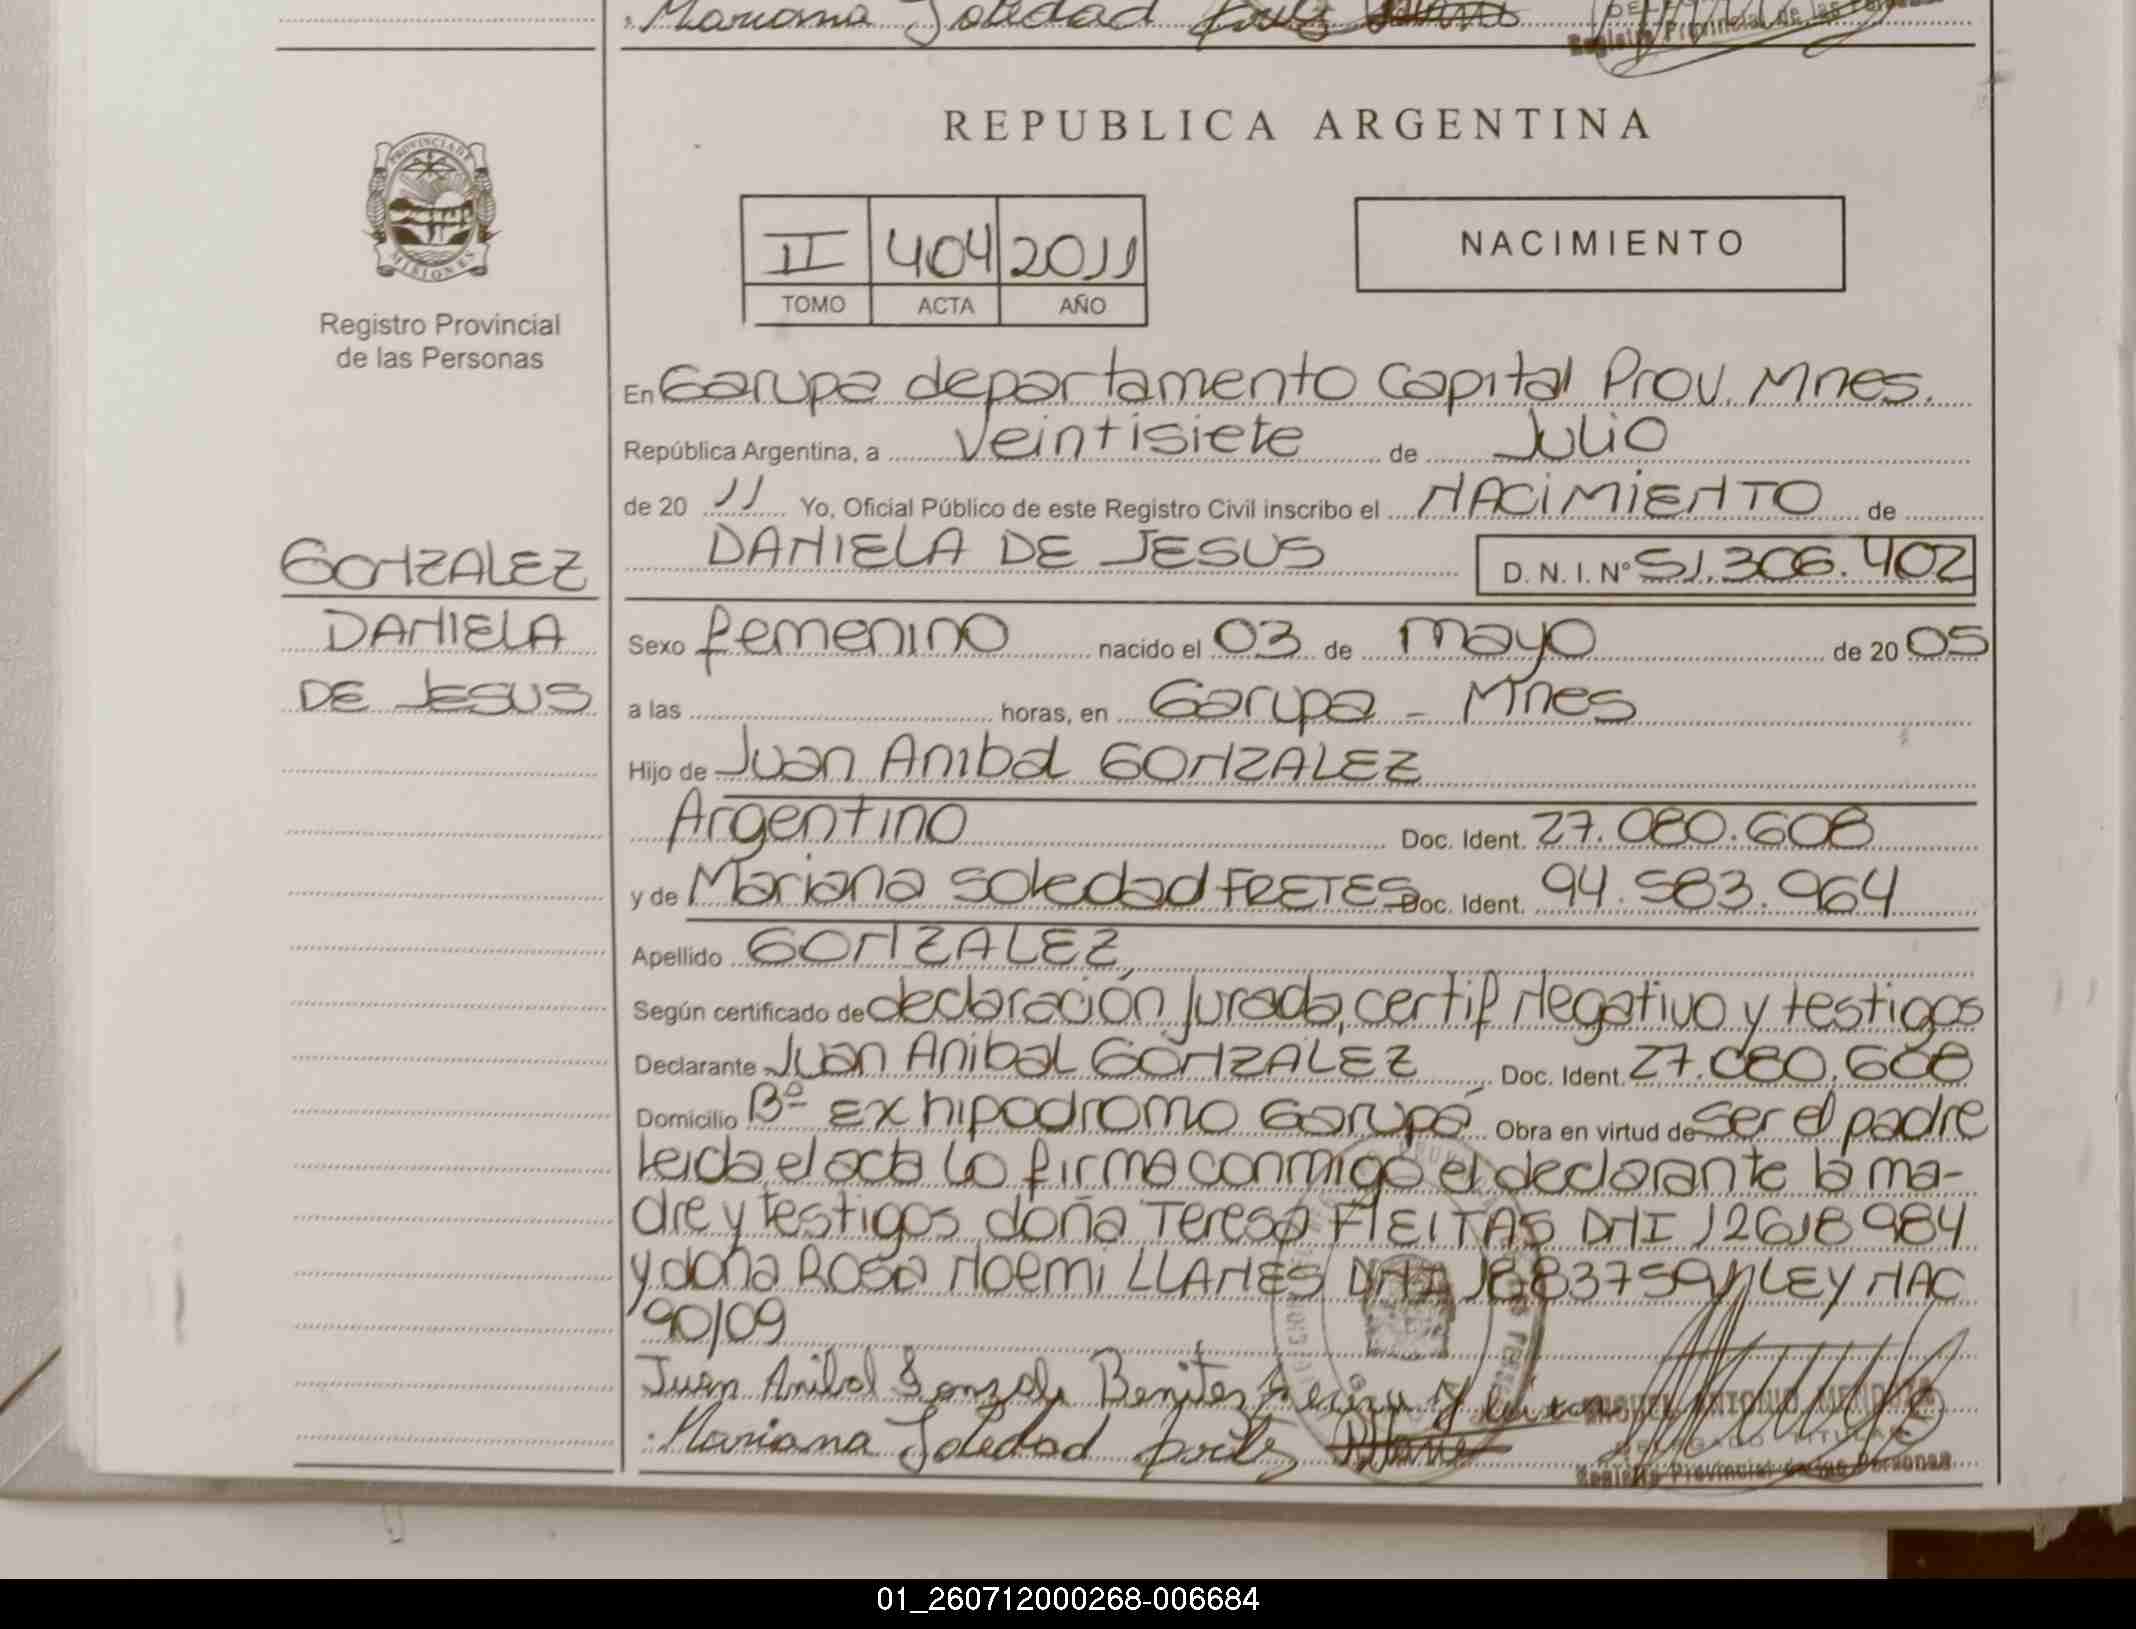 Mariana Soledad
Registro Provincial de las Personas
REPUBLICA ARGENTINA
PROVINCIA DE
MISIONES
Registro Provincial
de las Personas
II 404 2011
TOMO ACTA AÑO
NACIMIENTO
GONZALEZ
DANIELA
DE JESUS
En Garupa departamento Capital Prov. Mnes.
República Argentina, a veintisiete de Julio
de 20 11 Yo, Oficial Público de este Registro Civil inscribo el NACIMIENTO de
DANIELA DE JESUS D. N. I. Nº 51.306.402
Sexo femenino nacido el 03 de mayo de 20 05
a las horas, en Garupa - Mnes
Hijo de Juan Anibal GONZALEZ
Argentino Doc. Ident. 27.080.608
y de Mariana Soledad FRETES Doc. Ident. 94.583.964
Apellido GONZALEZ,
Según certificado de declaración jurada, certif Negativo y testigos
Declarante Juan Anibal GONZALEZ Doc. Ident. 27.080.608
Domicilio Bº Ex hipodromo Garupá Obra en virtud de ser el padre
leida el acta lo firma conmigo el declarante la ma-
dre y testigos doña Teresa FLEITAS DNI 12618984
y doña Rosa Noemi LLANES DNI 18837591 LEY NAC
90/09
Juan Anibal Gonzale Benites
Mariana Soledad
MIGUEL ANTONIO MENDOZA
DELEGADO TITULAR
Registro Provincial de las Personas
01_260712000268-006684